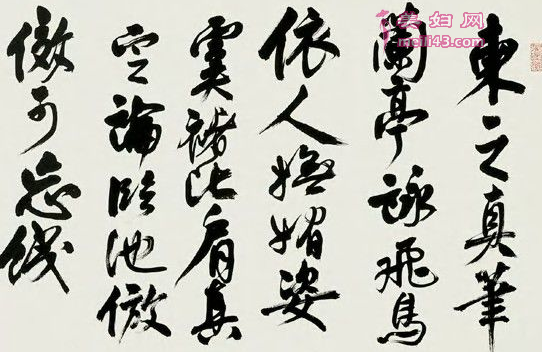 柬之真筆
蘭亭詠飛鳥
依人嫵媚姿
虞褚比肩真
定論臨池倣
倣可忘饑
美妇网
meili43.com